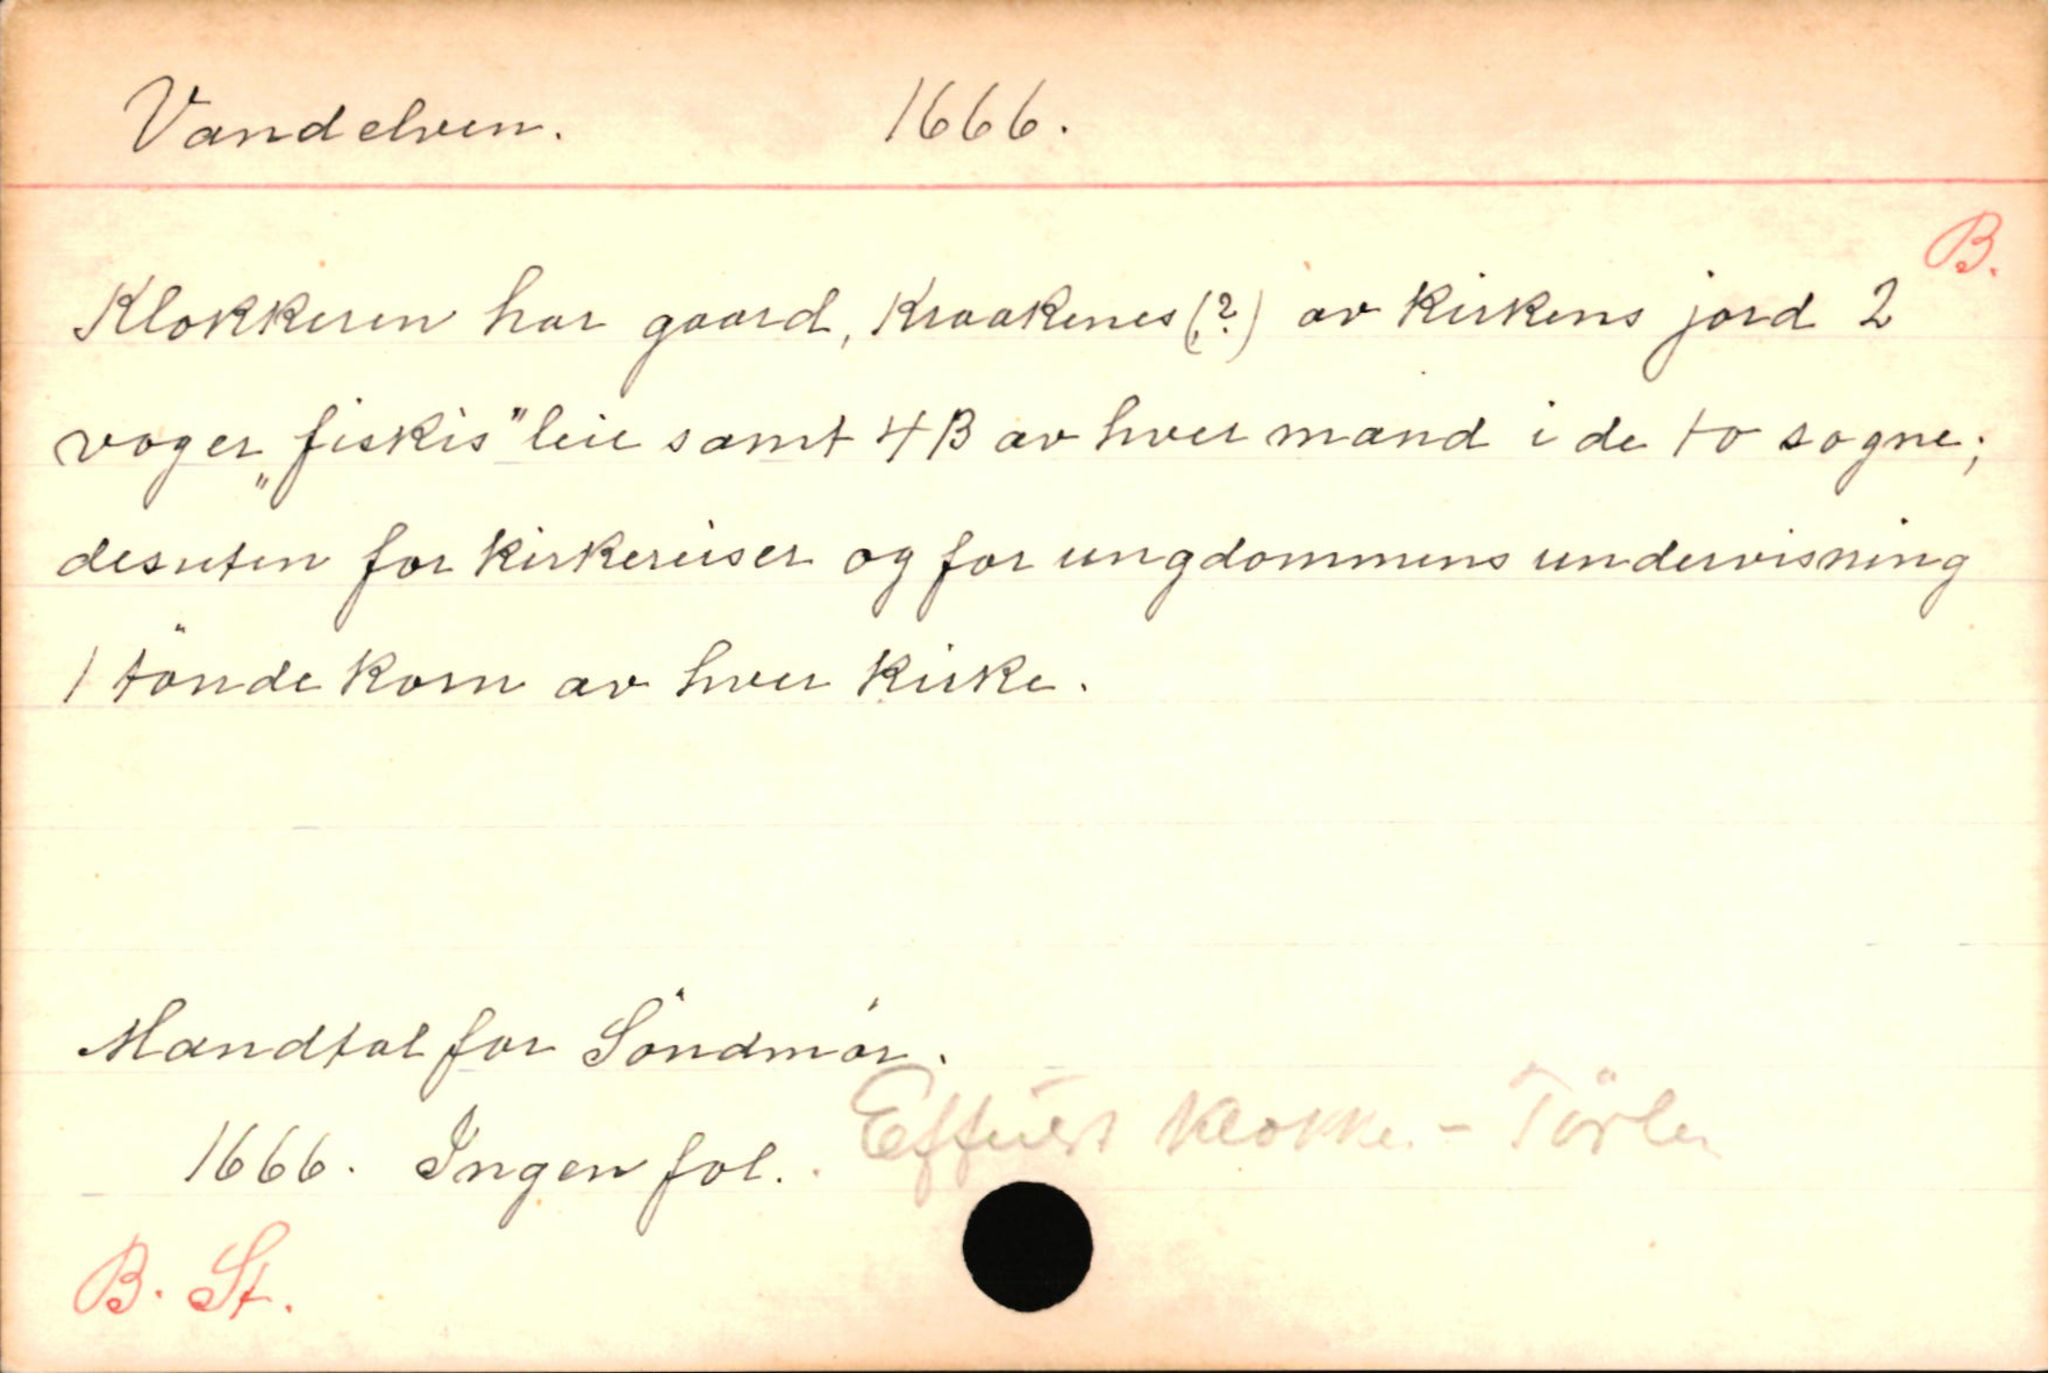 Vandelven. 1666.
B.
Klokkeren har gaard, Kraakenes (?) av kirkens jord 2
voger „fiskis" leie samt 4 β av hver mand i de to sogne;
desuten for kirkereiser og for ungdommens undervisning
1 tönde korn av hver kirke.
Mandtal for Söndmör.
1666. Ingen fol.
Klokke -
B. St.